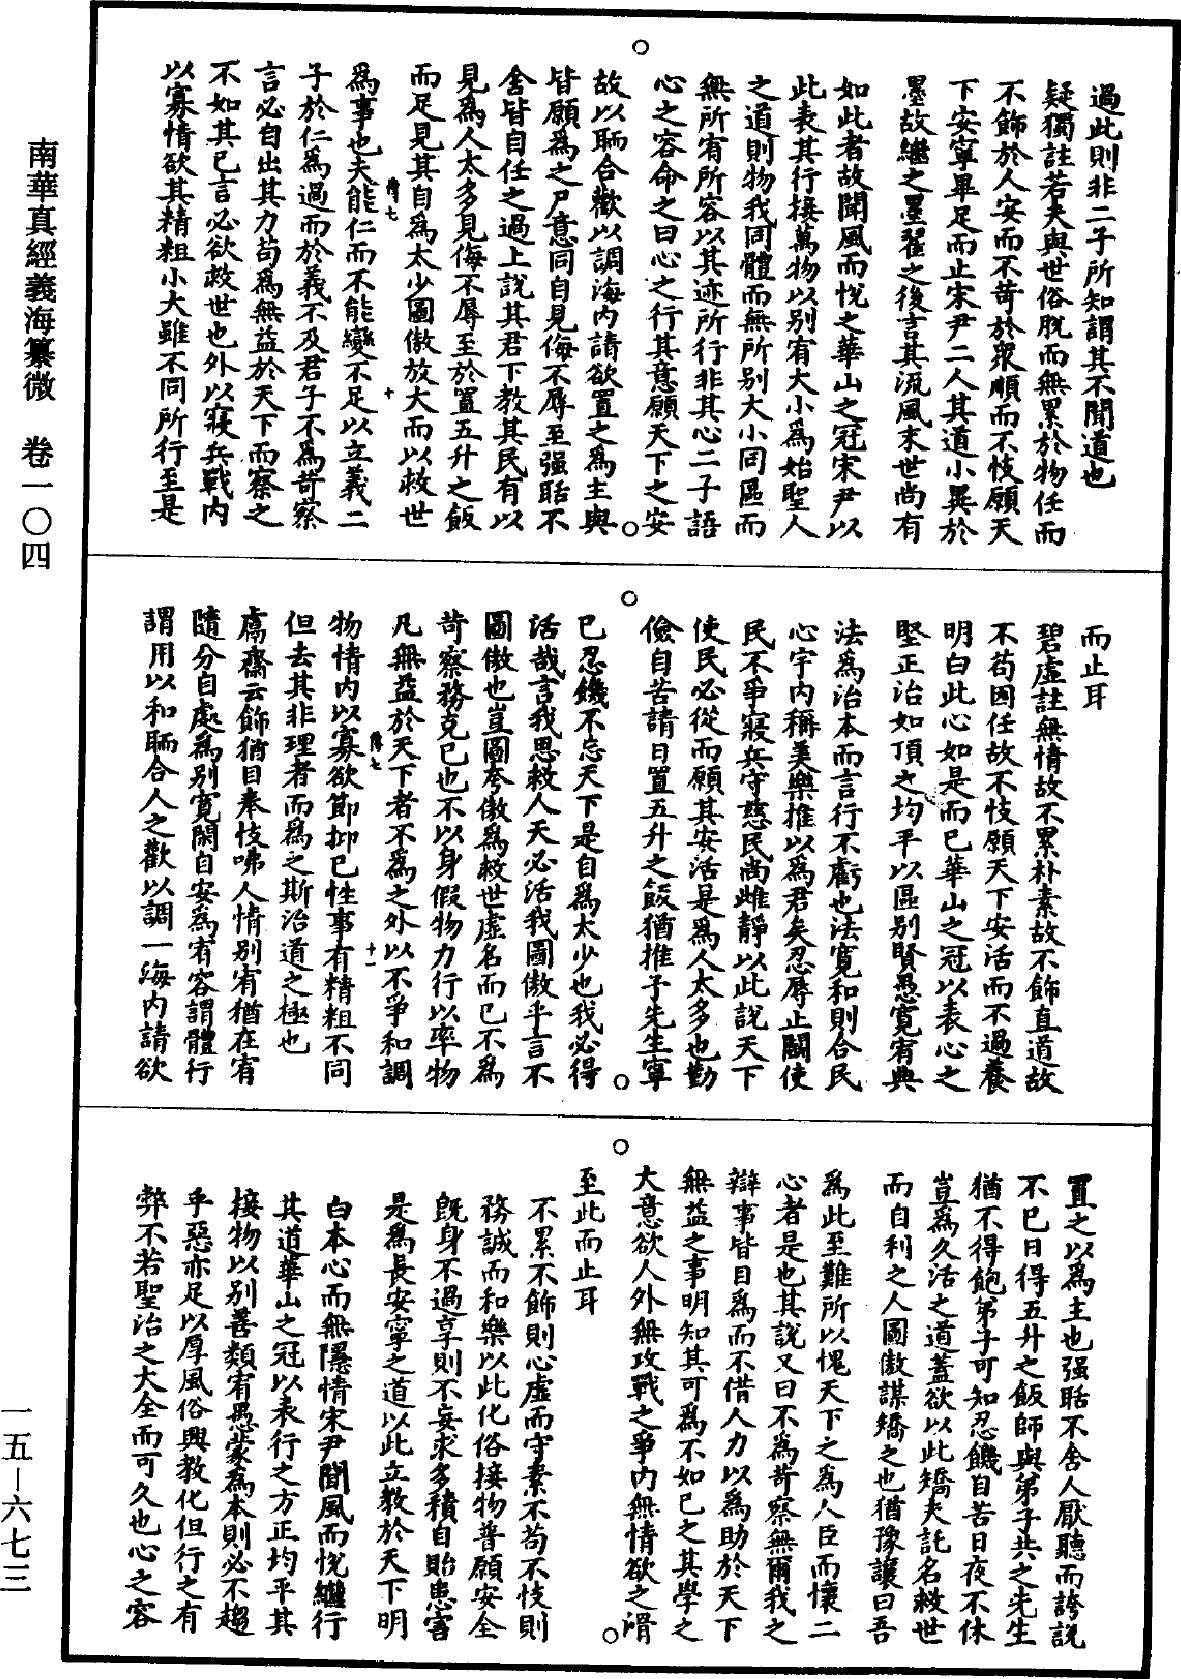 南華真經義海纂微　卷一〇四
一五－六七三
過此則非二子所知謂其不聞道也
疑獨註若夫與世俗脫而無累於物任而
不飾於人安而不苟於眾順而不忮願天
下安寧畢足而止宋尹二人其道小異於
墨故繼之墨翟之後言其流風末世尚有
如此者故聞風而悅之華山之冠宋尹以
此表其行接萬物以别宥大小為始聖人
之道則物我同體而無所别大小同區而
無所宥所容以其迹所行非其心二子語
心之容命之曰心之行其意願天下之安
故以聏合歡以調海內請欲置之為主與
皆願為之尸意同自見侮不辱至强聒不
舍皆自任之過上說其君下教其民有以
見為人太多見侮不辱至於置五升之飯
而足見其自為太少圖傲放大而以救世
為事也夫能仁而不能變不足以立義二
子於仁為過而於義不及君子不為苛察
言必自出其力苟為無益於天下而察之
不如其已言必欲救世也外以寢兵戰内
以寡情欲其精粗小大雖不同所行至是
而止耳
碧虛註無情故不累朴素故不飾直道故
不苟因任故不忮願天下安活而不過養
明白此心如是而已華山之冠以表心之
堅正治如頂之均平以區别賢愚寬宥典
法為治本而言行不虧也法寬和則合民
心宇内稱美樂推以為君矣忍辱止鬬使
民不爭寢兵守慈民尚雌靜以此說天下
使民必從而願其安活是為人太多也勤
儉自苦請日置五升之飯猶推予先生寧
已忍饑不忘天下是自為太少也我必得
活哉言我思救人天必活我圖傲乎言不
圖傲也豈圖夸傲為救世虛名而已不為
苛察務克已也不以身假物力行以率物
凡無益於天下者不為之外以不爭和調
物情内以寡欲節抑已性事有精粗不同
但去其非理者而為之斯治道之極也
鬳齋云飾猶自奉忮咈人情别宥猶在宥
隨分自處為别寬閑自安為宥容謂體行
謂用以和聏合人之歡以調一海内請欲
置之以為主也强聒不舍人厭聽而誇說
不已日得五升之飯師與弟子共之先生
猶不得飽弟子可知忍饑自苦日夜不休
豈為久活之道蓋欲以此矯夫託名救世
而自利之人圖傲謀矯之也猶豫讓曰吾
為此至難所以愧天下之為人臣而懷二
心者是也其說又曰不為苛察無爾我之
辯事皆自為而不借人力以為助於天下
無益之事明知其可為不如已之其學之
大意欲人外無攻戰之爭内無情欲之滑
至此而止耳
不累不飾則心虛而守素不苟不忮則
務誠而和樂以此化俗接物普願安全
既身不過享則不妄求多積自貽患害
是為長安寧之道以此立教於天下明
白本心而無隱情宋尹聞風而悅繼行
其道華山之冠以表行之方正均平其
接物以别善類宥愚蒙為本則必不趨
乎惡亦足以厚風俗興教化但行之有
弊不若聖治之大全而可久也心之容